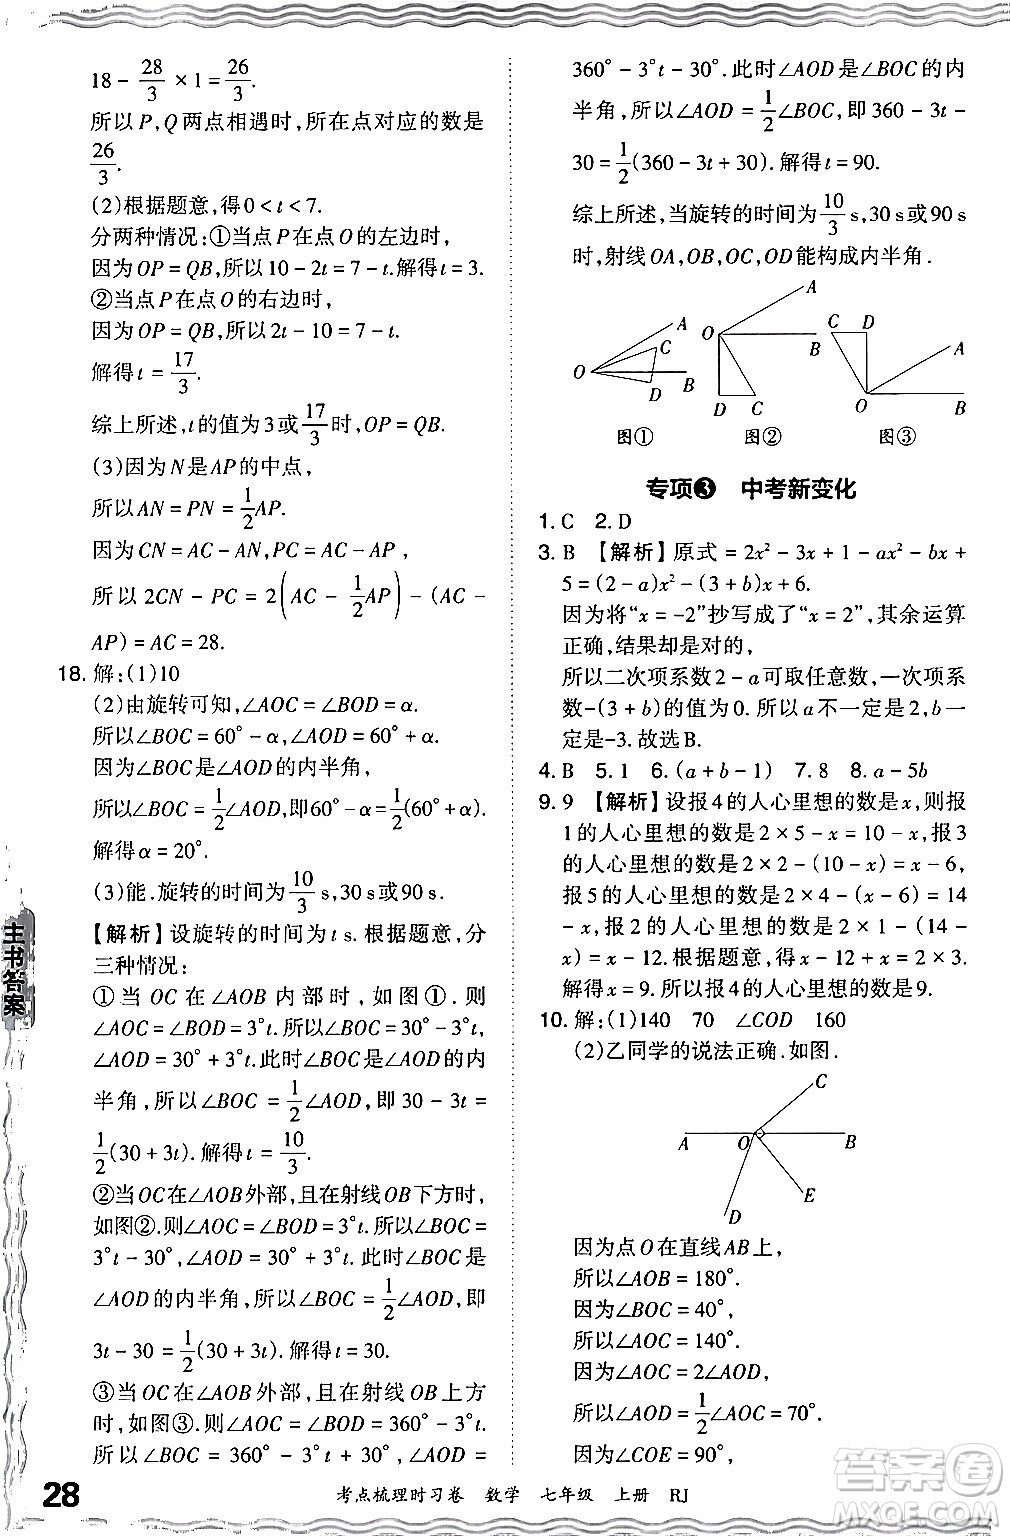 18 - 28/3 × 1 = 26/3.
所以P,Q两点相遇时,所在点对应的数是
26/3.
(2)根据题意,得0 < t < 7.
分两种情况:①当点P在点O的左边时,
因为OP = QB,所以10 - 2t = 7 - t.解得t = 3.
②当点P在点O的右边时,
因为OP = QB,所以2t - 10 = 7 - t.
解得t = 17/3.
综上所述,t的值为3或17/3时,OP = QB.
(3)因为N是AP的中点,
所以AN = PN = 1/2AP.
因为CN = AC - AN,PC = AC - AP,
所以2CN - PC = 2(AC - 1/2AP) - (AC -
AP) = AC = 28.
18. 解:(1)10
(2)由旋转可知,∠AOC = ∠BOD = α.
所以∠BOC = 60° - α,∠AOD = 60° + α.
因为∠BOC是∠AOD的内半角,
所以∠BOC = 1/2∠AOD,即60° - α = 1/2(60° + α).
解得α = 20°.
(3)能.旋转的时间为10/3 s,30 s或90 s.
【解析】设旋转的时间为t s.根据题意,分
三种情况:
①当OC在∠AOB内部时,如图①.则
∠AOC = ∠BOD = 3°t.所以∠BOC = 30° - 3°t,
∠AOD = 30° + 3°t.此时∠BOC是∠AOD的内
半角,所以∠BOC = 1/2∠AOD,即30 - 3t =
1/2(30 + 3t).解得t = 10/3.
②当OC在∠AOB外部,且在射线OB下方时,
如图②.则∠AOC = ∠BOD = 3°t.所以∠BOC =
3°t - 30°,∠AOD = 30° + 3°t.此时∠BOC是
∠AOD的内半角,所以∠BOC = 1/2∠AOD,即
3t - 30 = 1/2(30 + 3t).解得t = 30.
③当OC在∠AOB外部,且在射线OB上方
时,如图③.则∠AOC = ∠BOD = 360° - 3°t.
所以∠BOC = 360° - 3°t - 30°,∠AOD =
360° - 3°t - 30°.此时∠AOD是∠BOC的内
半角,所以∠AOD = 1/2∠BOC,即360 - 3t -
30 = 1/2(360 - 3t + 30).解得t = 90.
综上所述,当旋转的时间为10/3 s,30 s或90 s
时,射线OA,OB,OC,OD能构成内半角.
A C O B D
A O B D C
C D A O B
图① 图② 图③
专项❸ 中考新变化
1. C 2. D
3. B 【解析】原式 = 2x² - 3x + 1 - ax² - bx +
5 = (2 - a)x² - (3 + b)x + 6.
因为将“x = -2”抄写成了“x = 2”,其余运算
正确,结果却是对的,
所以二次项系数2 - a可取任意数,一次项系
数-(3 + b)的值为0.所以a不一定是2,b一
定是-3.故选B.
4. B 5. 1 6. (a + b - 1) 7. 8 8. a - 5b
9. 9 【解析】设报4的人心里想的数是x,则报
1的人心里想的数是2 × 5 - x = 10 - x,报3
的人心里想的数是2 × 2 - (10 - x) = x - 6,
报5的人心里想的数是2 × 4 - (x - 6) = 14
- x,报2的人心里想的数是2 × 1 - (14 -
x) = x - 12.根据题意,得x + x - 12 = 2 × 3.
解得x = 9.所以报4的人心里想的数是9.
10. 解:(1)140 70 ∠COD 160
(2)乙同学的说法正确.如图.
C
A O B
E
D
因为点O在直线AB上,
所以∠AOB = 180°.
因为∠BOC = 40°,
所以∠AOC = 140°.
因为∠AOC = 2∠AOD,
所以∠AOD = 1/2∠AOC = 70°.
因为∠COE = 90°,
主书答案
28
考点梳理时习卷 数学 七年级 上册 RJ
答案圈
MXQE.COM